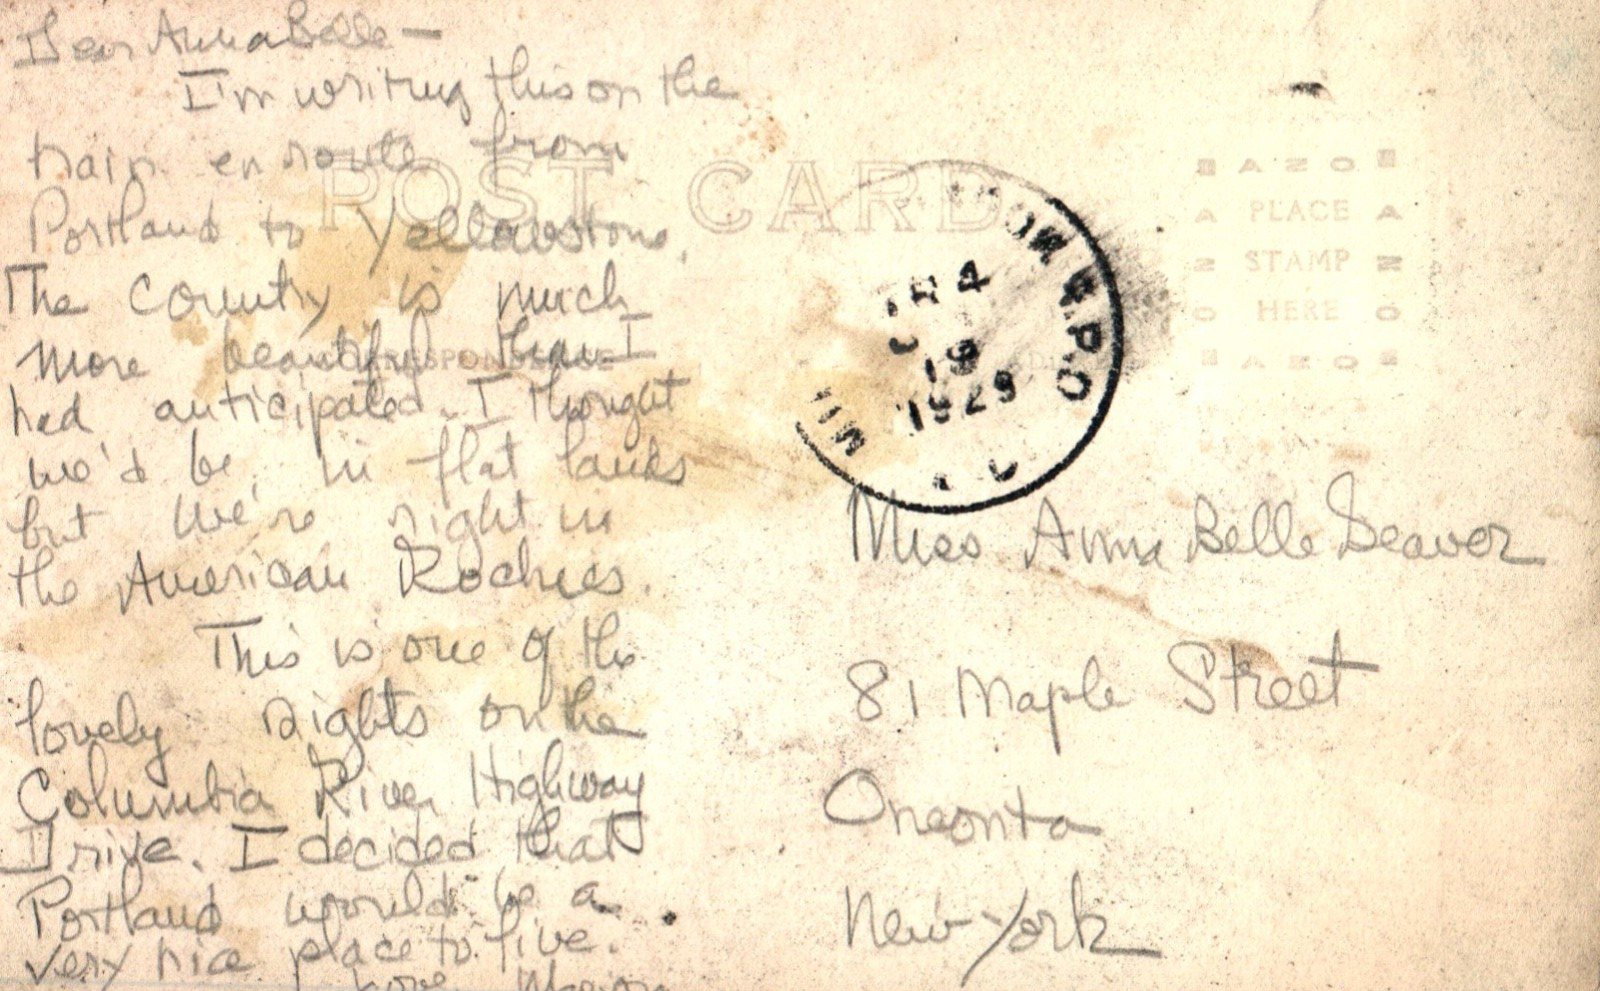 Dear AnnaBelle —
I'm writing this on the
train en route from
Portland to Yellowstone.
The country is much
more beautiful than I
had anticipated. I thought
we'd be in flat lands
but we're right in
the American Rockies.
This is one of the
lovely sights on the
Columbia River Highway
Drive. I decided that
Portland would be a
very nice place to live.
Love,
POST CARD
CORRESPONDENCE
R.P.O.
TR 4
19
1929
AZO
PLACE
STAMP
HERE
AZO
Miss Anna Belle Seaver
81 Maple Street
Oneonta
New York